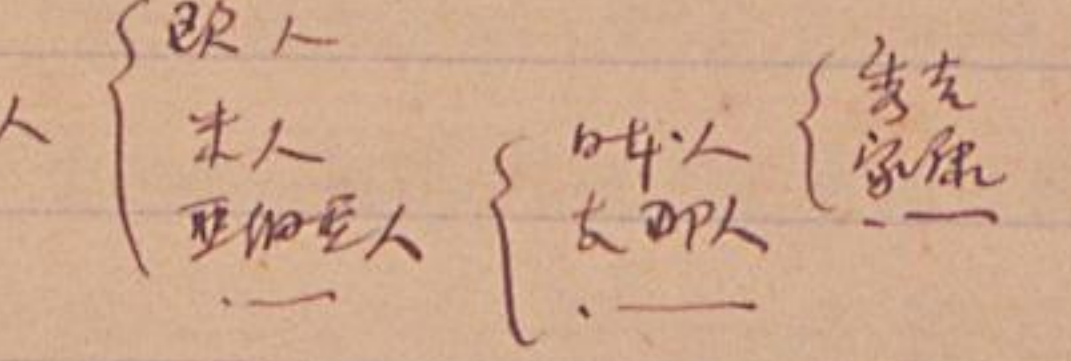 人
欧人
米人
亜細亜人
日本人
支那人
秀吉
家康